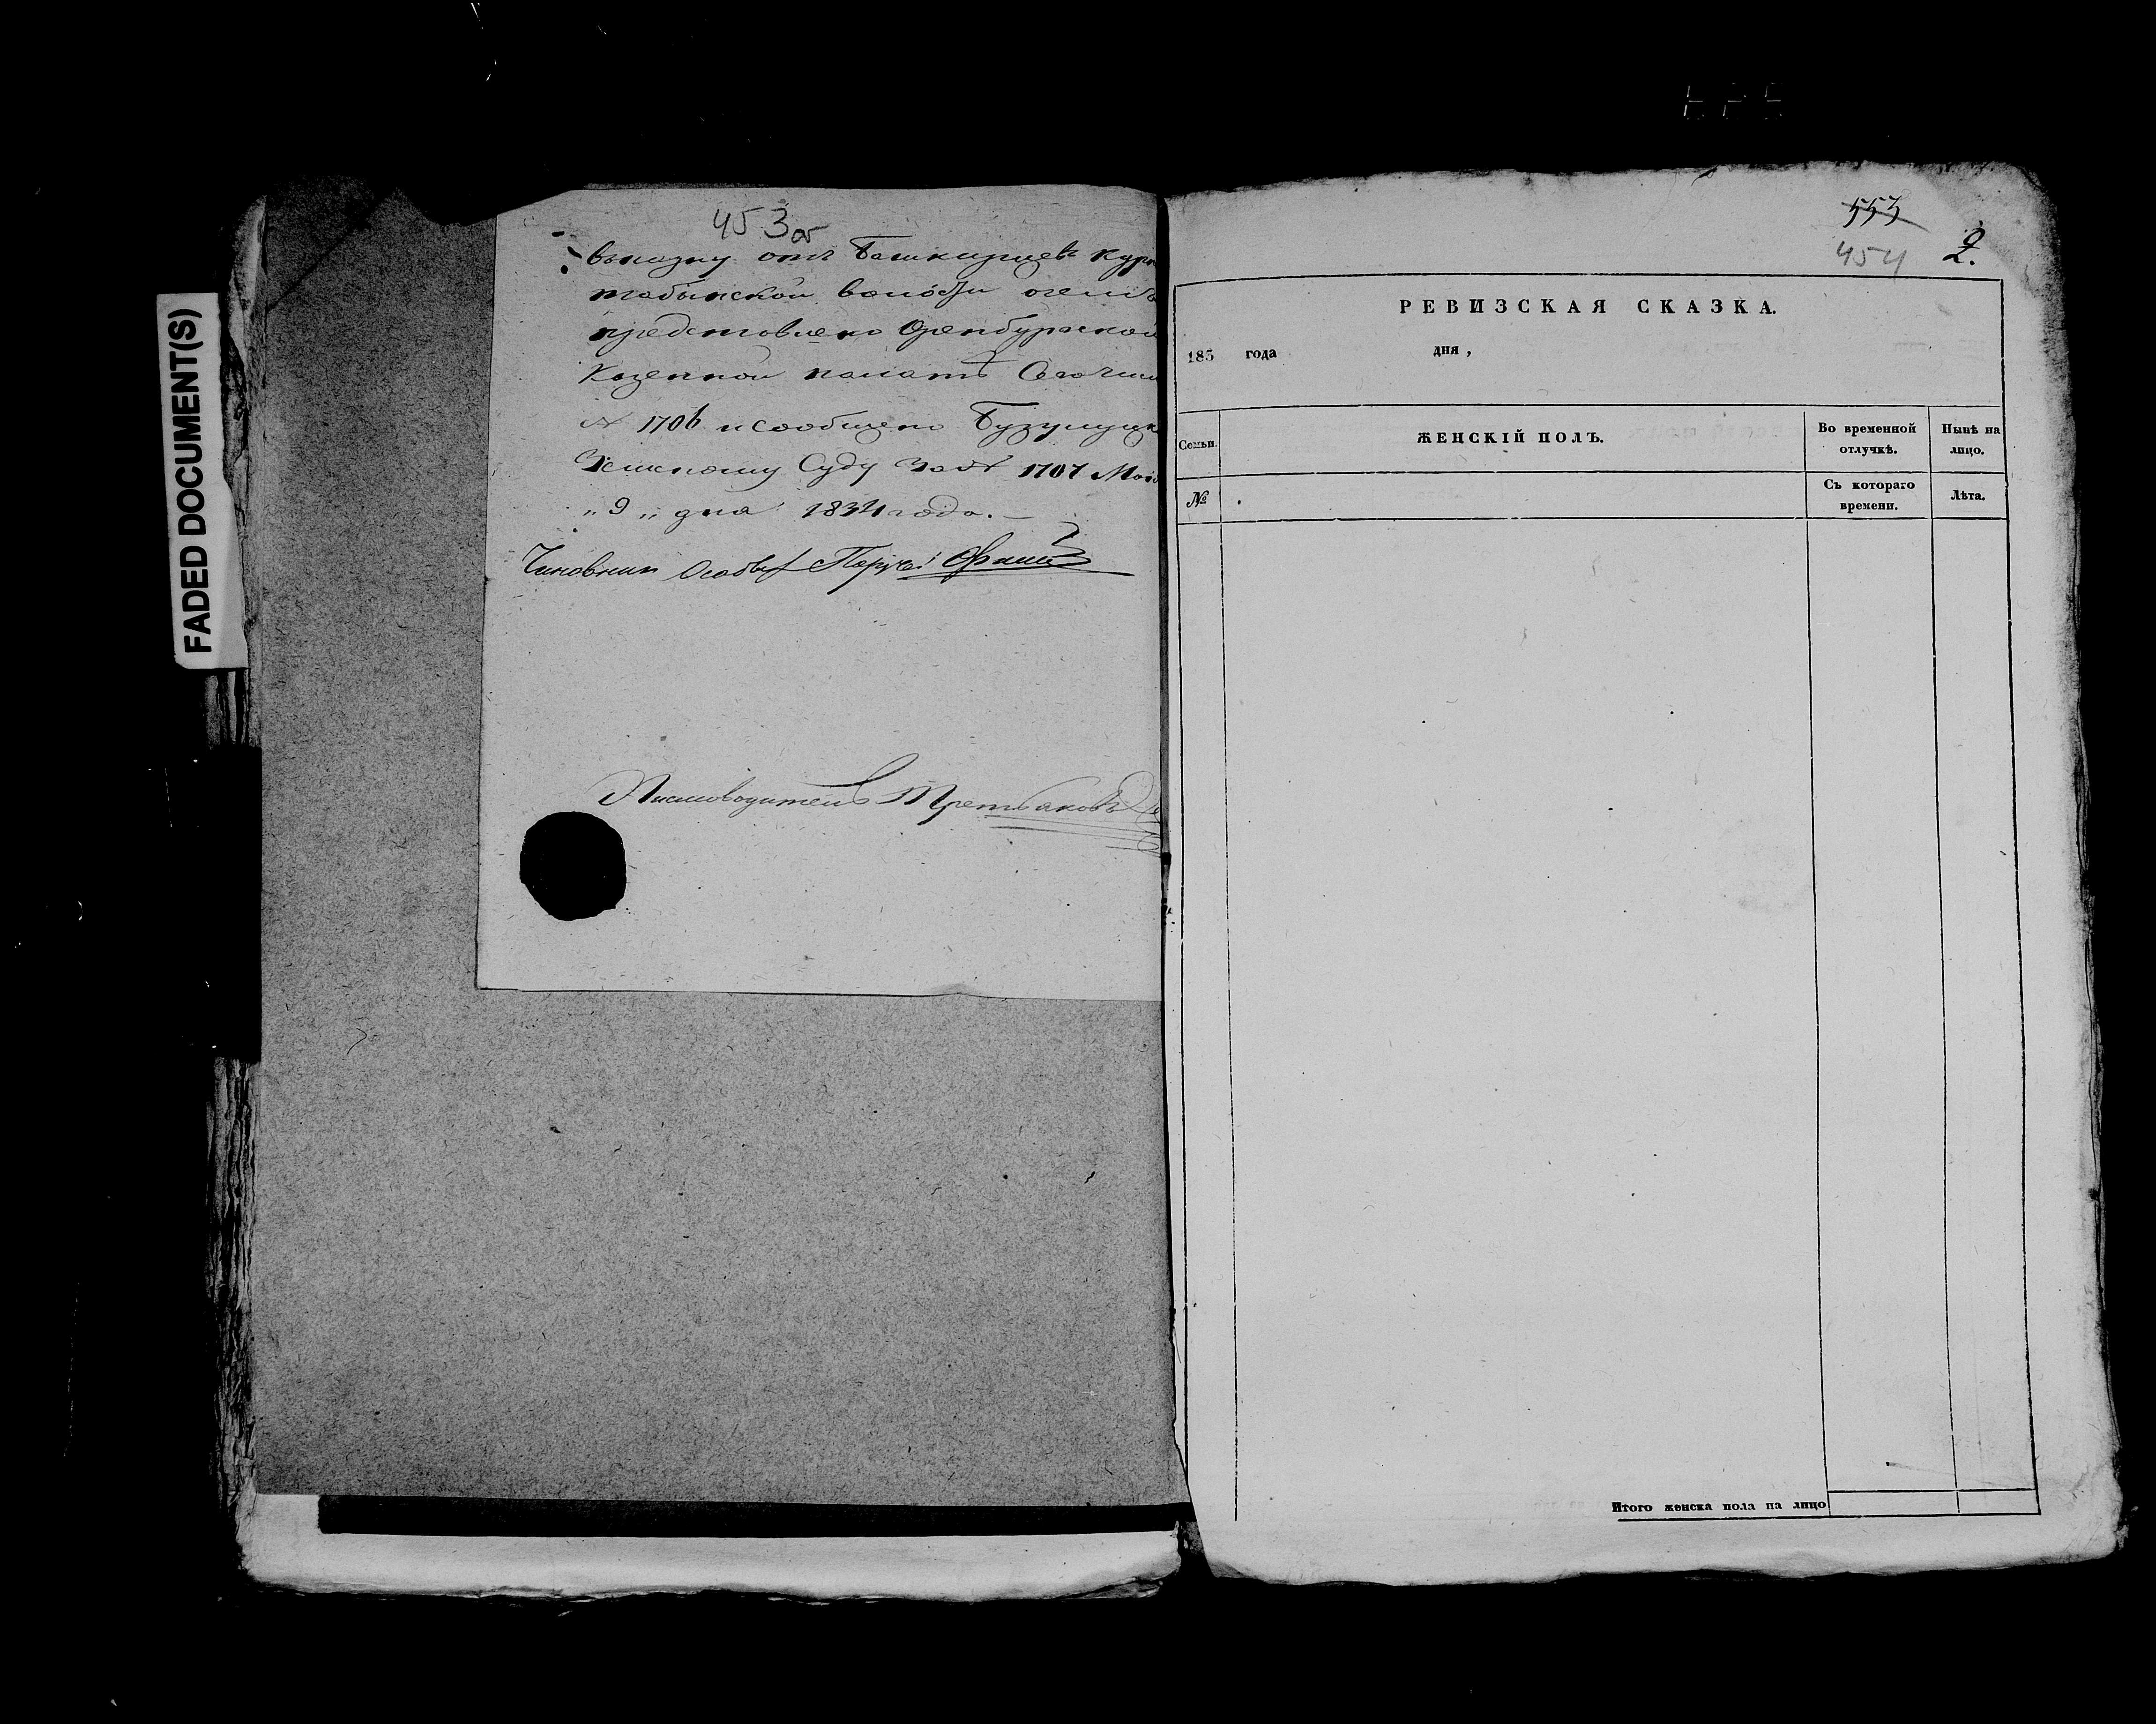 FADED DOCUMENT(S)
453 об
выпазку отъ Башкирцевъ Кур
табынской волости о чемъ
представлено Оренбургской
Казенной палатѣ
№ 1706 и сообщено Бузулуцк
Земскому Суду за № 1707 Маія
„ 9 „ дня 1834 года.
Чиновник Особых Поруч:
Писмоводитель Третьяковъ
553
454 2.
РЕВИЗСКАЯ СКАЗКА.
185 года дня ,
Семьи. ЖЕНСКІЙ ПОЛЪ. Во временной отлучкѣ. Нынѣ на лицо.
№ Съ котораго времени. Лѣта.
Итого женска пола на лицо